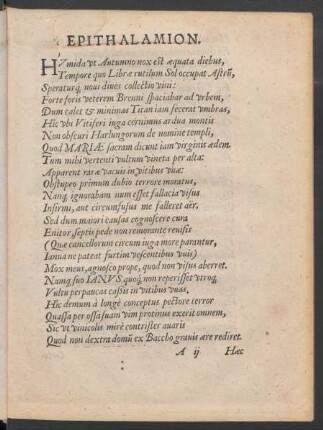 EPITHALAMION.
HVmida vt Autumno nox est æquata diebus,
Tempore quo Libræ rutilum Sol occupat Astrũ,
Speraturq́; noui diues collectio vini:
Forte foris veterem Brenni spaciabar ad vrbem,
Dum calet & minimas Titan iam fecerat vmbras,
Hîc vbi Vitiferi iuga cernimus ardua montis
Non obscuri Harlungorum de nomine templi,
Quod MARIÆ sacram dicunt iam virginis ædem.
Tum mihi vertenti vultum vineta per alta:
Apparent raræ vacuis in vitibus vuæ:
Obstupeo primum dubio terrore moratus,
Namq́; ignorabam num esset fallacia visus
Infirmi, aut circumfusus me falleret aër.
Sed dum maiori causas cognoscere cura
Enitor, septis pede non remorante reuisis
(Quæ cancellorum circum iuga more parantur,
Ianua ne pateat furtim vescentibus vuis)
Mox meus, agnosco prope, quod non visus aberret.
Namq́; suo IANVS quoq́; non reperisset vtroq́;
Vultu perpaucas cassis in vitibus vuas,
Hîc demum à longè conceptus pectore terror
Quassa per ossa suam vim protinus exerit omnem,
Sic vt vinicolis mirè contrister auaris
Quod non dextra domũ ex Baccho grauis ære rediret.
A ij Hæc